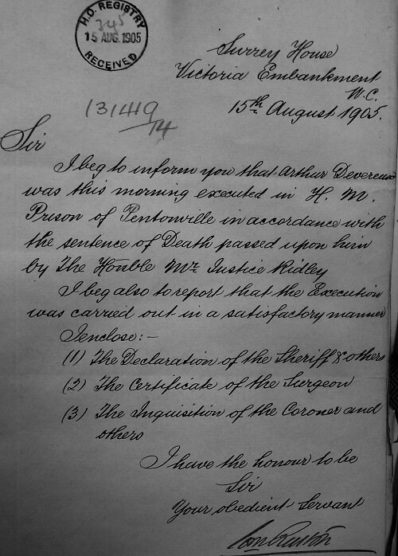 H.O. REGISTRY
345
15 AUG. 1905
RECEIVED
Surrey House
Victoria Embankment
W.C.
15th August 1905.
131419
/14
Sir
I beg to inform you that Arthur Devereux
was this morning executed in H. M.
Prison of Pentonville in accordance with
the sentence of Death passed upon him
by The Honble Mr Justice Ridley
I beg also to report that the Execution
was carried out in a satisfactory manner
I enclose:-
(1) The Declaration of the Sheriff & others
(2) The Certificate of the Surgeon
(3) The Inquisition of the Coroner and
others
I have the honour to be
Sir
Your obedient Servant